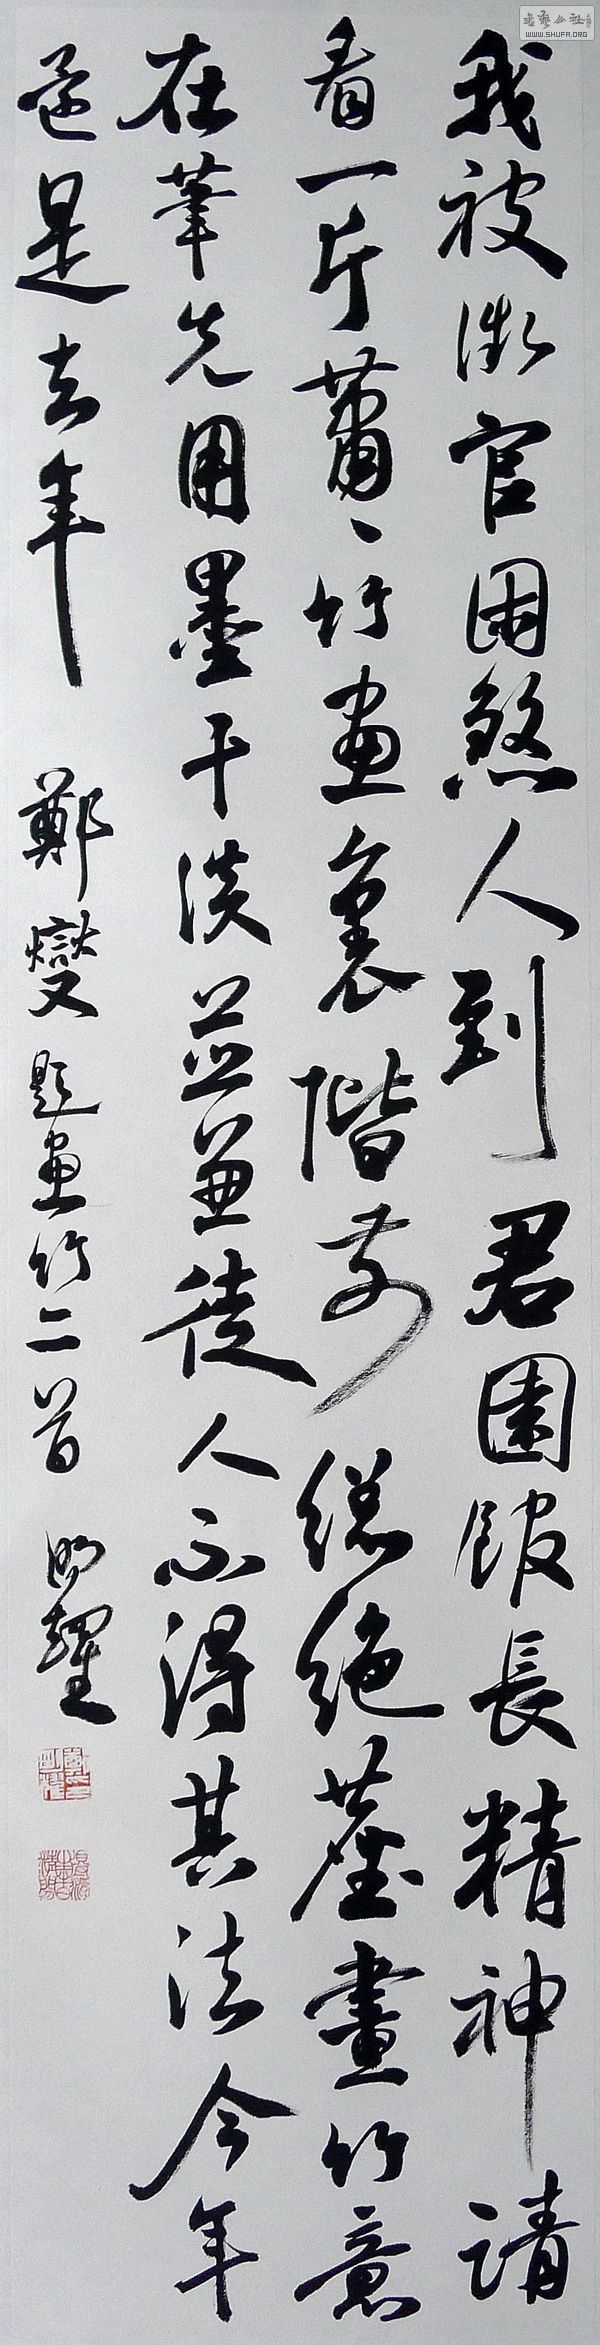 書藝公社
WWW.SHUFA.ORG
我被微官困煞人到君園館長精神請
看一片蕭〻竹畫裏階前總絕塵畫竹意
在筆先用墨干淡並兼從人不得其法今年
還是去年 鄭燮題畫竹二首 明耀